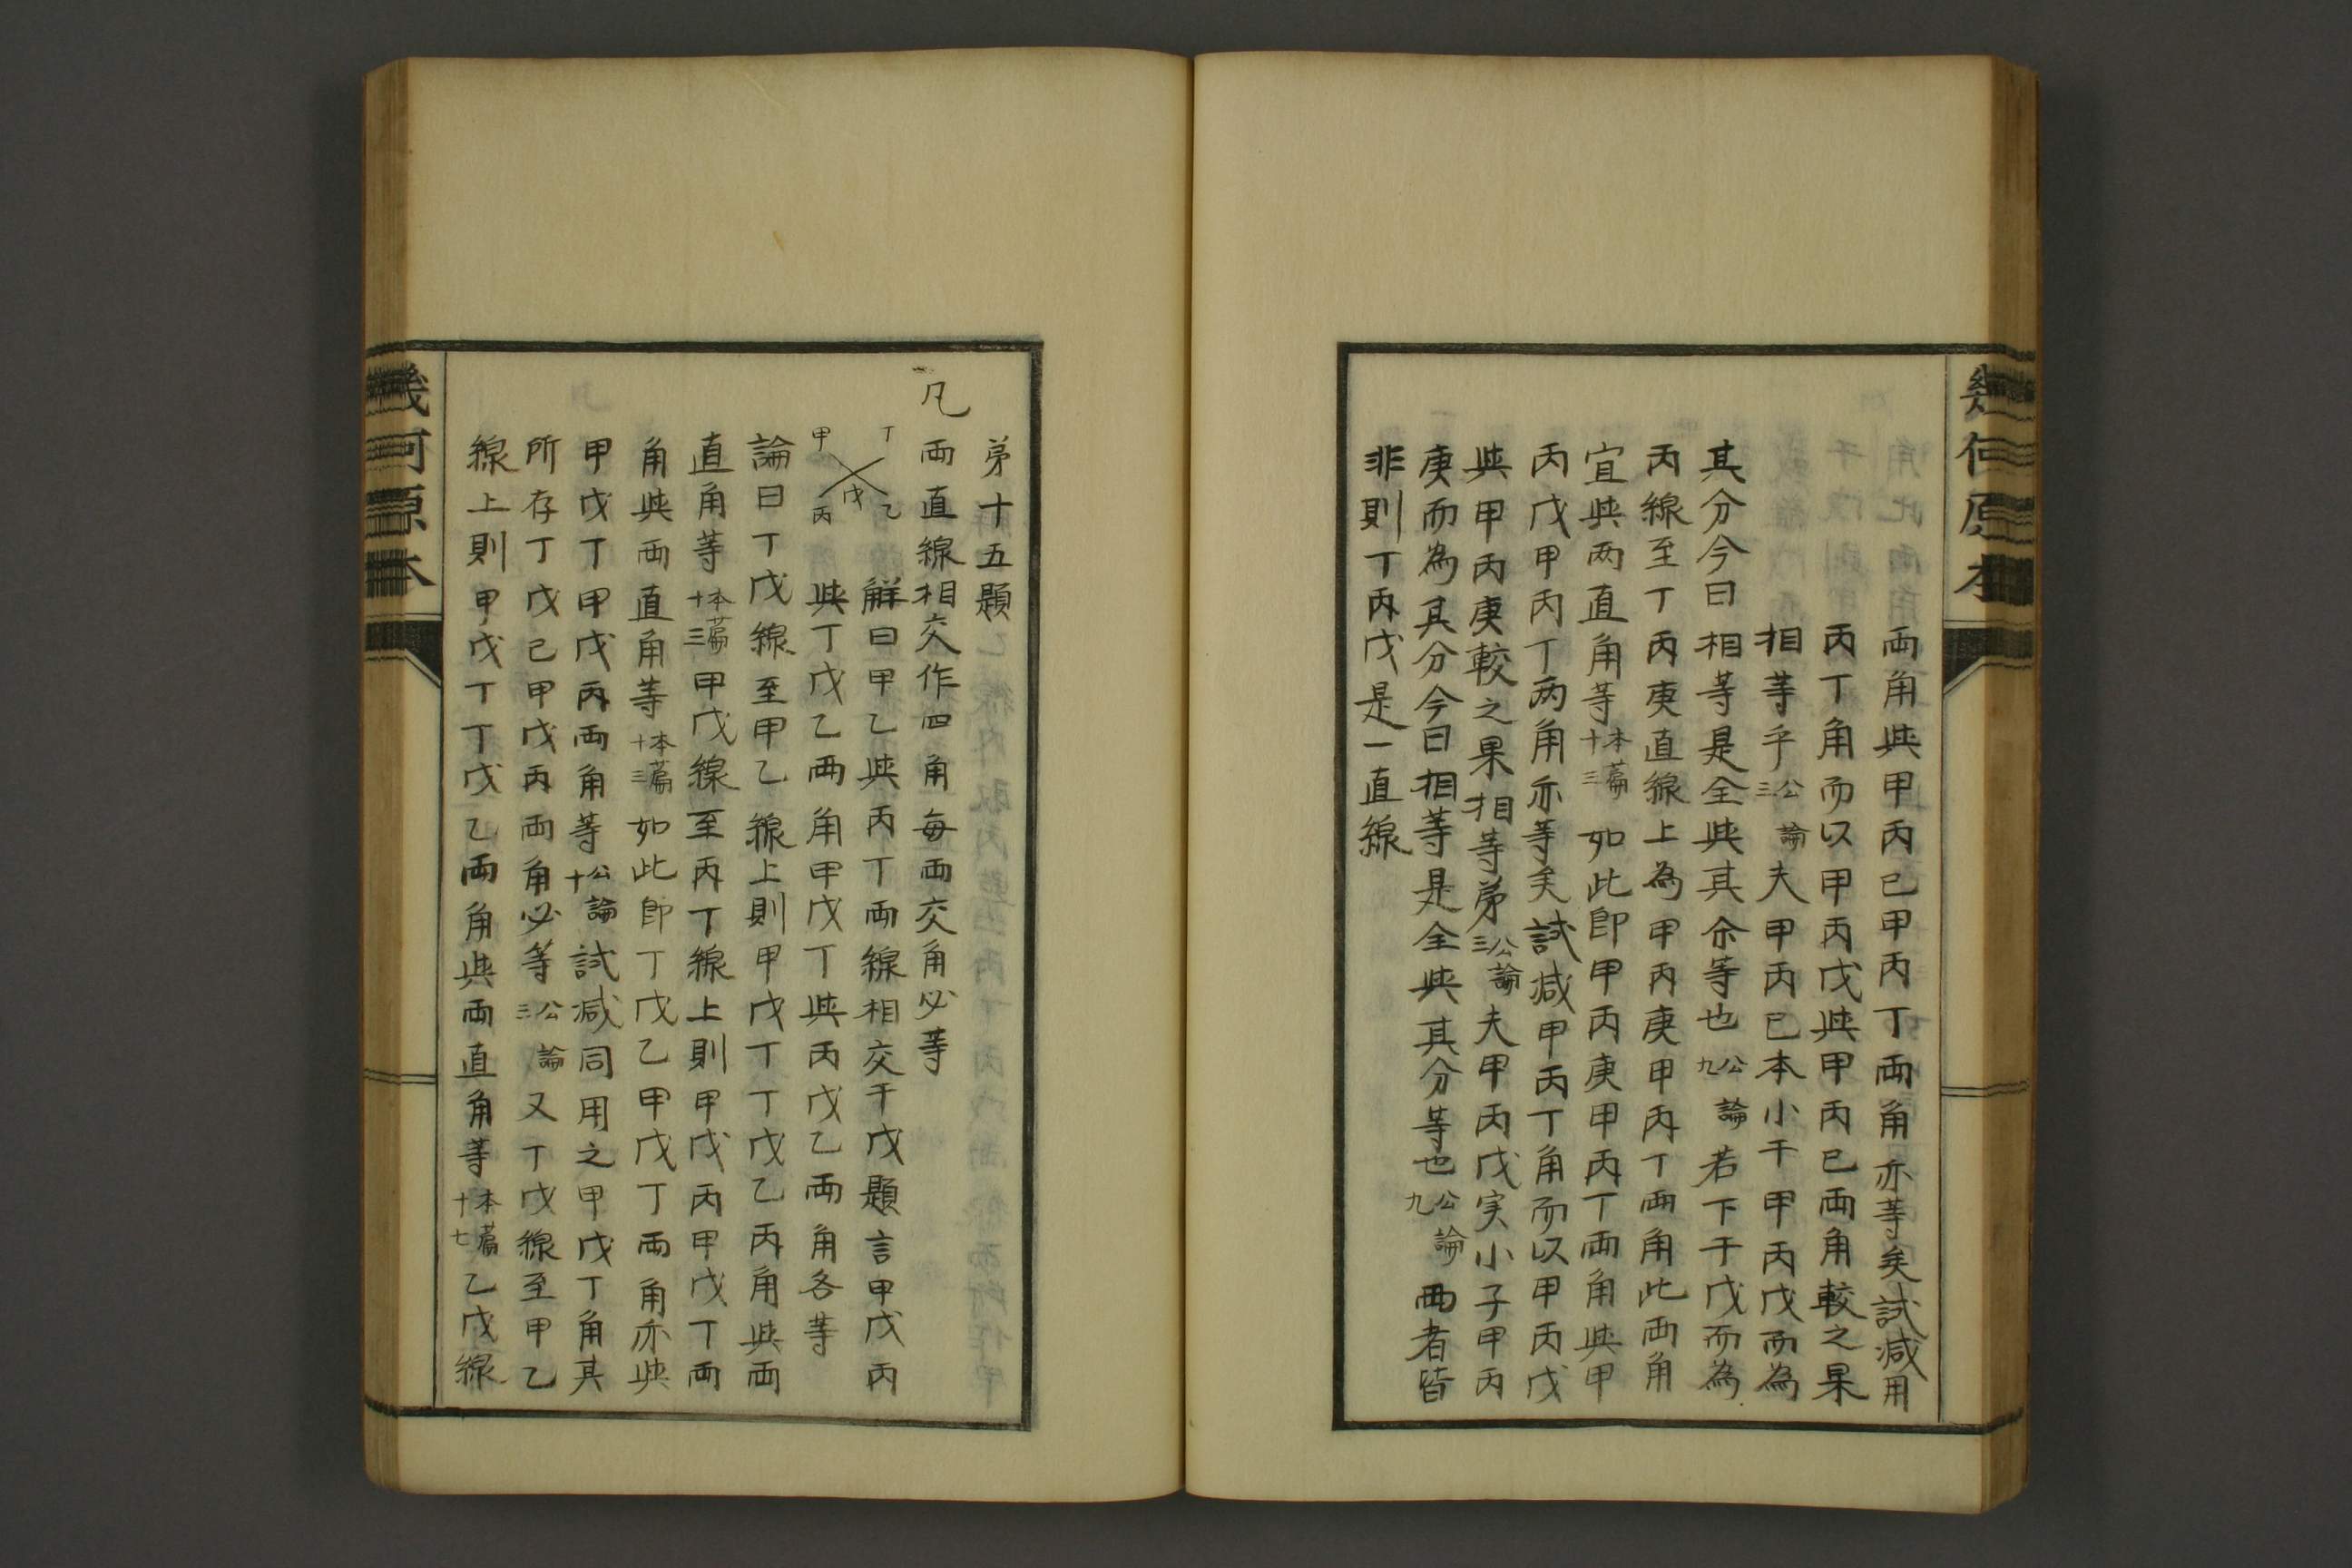 幾何原本
兩角與甲丙已甲丙丁兩角亦等矣試減用
丙丁角而以甲丙戊與甲丙已兩角較之果
相等乎公論三夫甲丙已本小于甲丙戊而為
其分今曰相等是全與其分等也公論九若下于戊而為
丙線至丁丙庚直線上為甲丙庚甲丙丁兩角此兩角
宜與两直角等本篇十三如此即甲丙庚甲丙丁兩角與甲
丙戊甲丙丁两角亦等矣試減甲丙丁角而以甲丙戊
與甲丙庚較之果相等苐公論三夫甲丙戊実小子甲丙
庚而為其分今曰相等是全與其分等也公論九兩者皆
非則丁丙戊是一直線
苐十五題
凡兩直線相交作四角每兩交角必等
解曰甲乙與丙丁兩線相交于戊題言甲戊丙
與丁戊乙兩角甲戊丁與丙戊乙兩角各等
丁
乙
戊
甲
丙
論曰丁戊線至甲乙線上則甲戊丁丁戊乙丙角與兩
直角等本篇十三甲戊線至丙丁線上則甲戊丙甲戊丁兩
角與兩直角等本篇十三如此即丁戊乙甲戊丁兩角亦與
甲戊丁甲戊丙兩角等公論十試減同用之甲戊丁角其
所存丁戊已甲戊丙兩角必等公論三又丁戊線至甲乙
線上則甲戊丁丁戊乙兩角與兩直角等本篇十七乙戊線
幾何原本